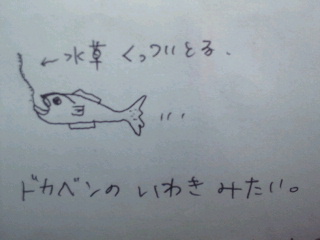 ← 水草 くっついとる、
ドカベンの いわき みたい。